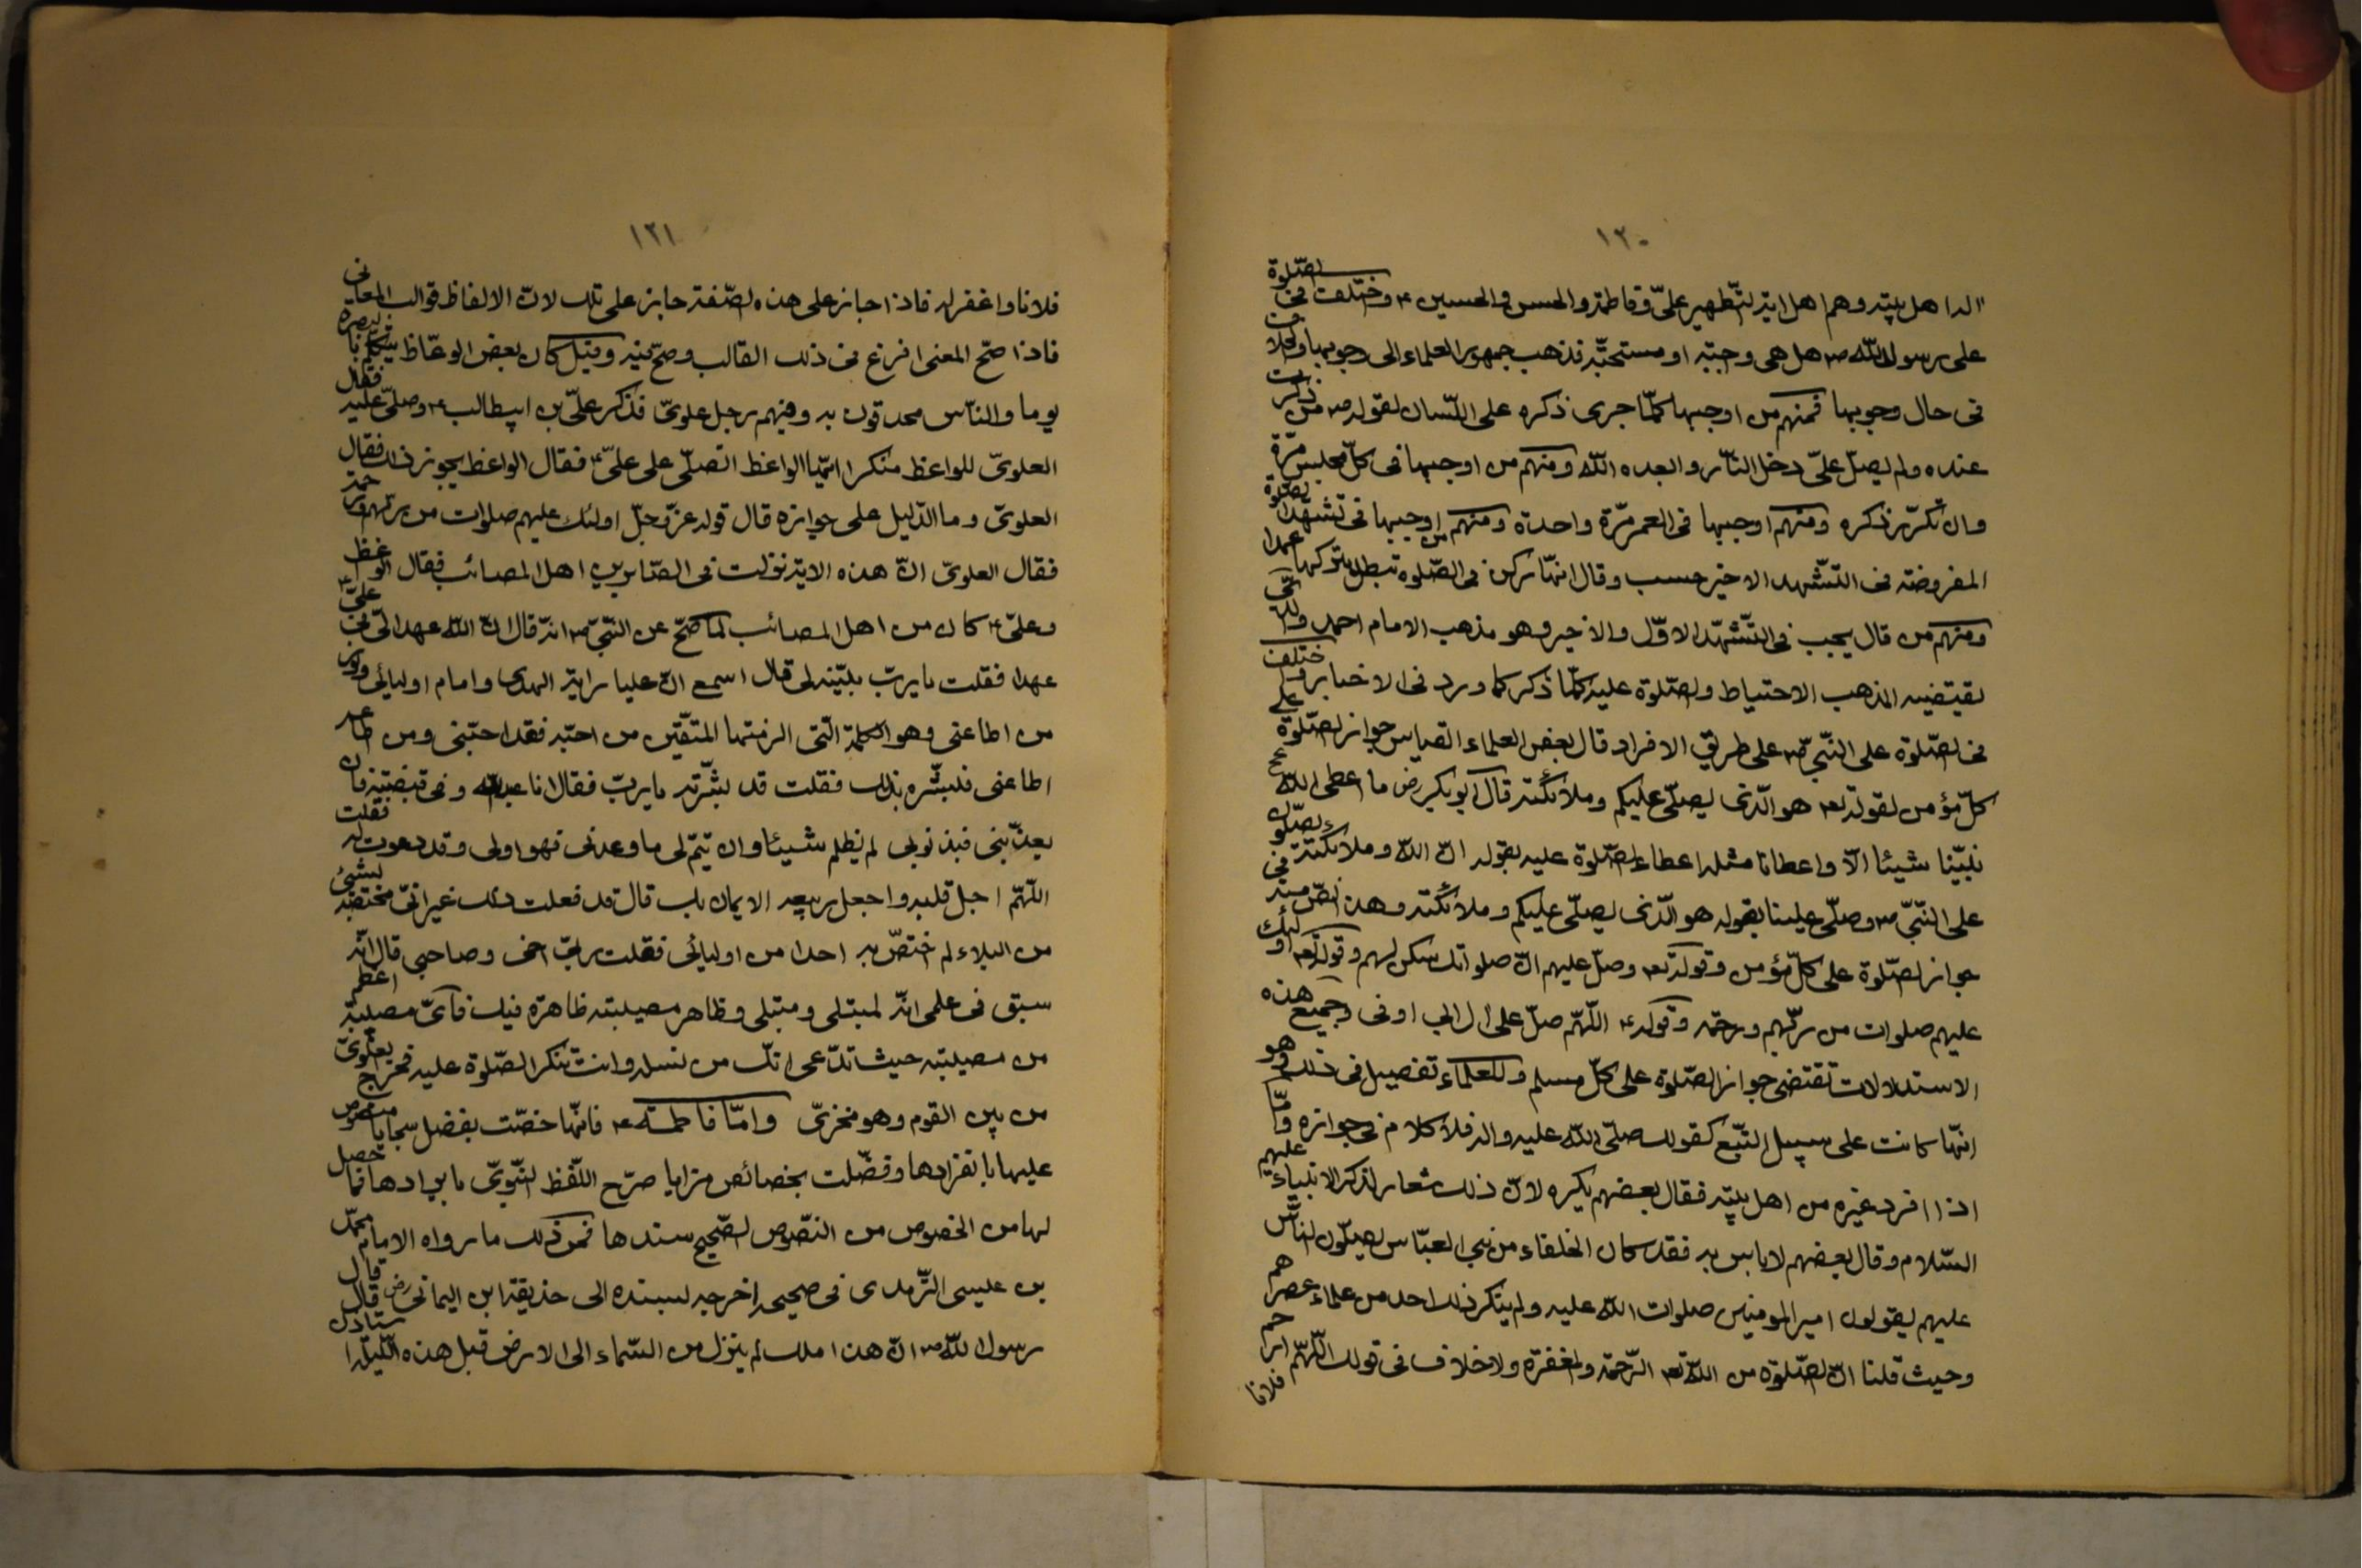 ١٢٠
اله اهل بيته وهم اهل اية التّطهير علىّ وفاطمة والحسن والحسين ع واختلف فى الصّلوة
على رسول اللّه ص هل هى واجبة او مستحبّة فذهب جمهور العلماء الى وجوبها واختلاف
فى حال وجوبها فمنهم من اوجبها كلّما جرى ذكره على اللّسان لقوله ص من ذكرت
عنده ولم يصلّ علىّ دخل النّار وابعده اللّه ومنهم من اوجبها فى كلّ مجلس مرّة
وان تكرّر ذكره ومنهم اوجبها فى العمر مرّة واحدة ومنهم من اوجبها فى تشهّد الصّلوة
المفروضة فى التّشهد الاخير حسب وقال انّها ركن فى الصّلوة تبطل بتركها عمدا
ومنهم من قال يجب فى التّشهّد الاوّل والاخير وهو مذهب الامام احمد والّذى
يقتضيه المذهب الاحتياط والصّلوة عليه كلّما ذكر كما ورد فى الاخبار واختلف
فى الصّلوة على النّبىّ ص على طريق الافراد قال بعض العلماء القياس جواز الصّلوة على
كلّ مؤمن لقوله تع هو الّذى يصلّى عليكم وملائكته قال ابو بكر رض ما اعطى اللّه
نبيّنا شيئا الّا واعطانا مثله اعطاء الصّلوة عليه بقوله انّ اللّه وملائكته يصلّون
على النّبىّ ص وصلّى علينا بقوله هو الّذى يصلّى عليكم وملائكته وهذا نصّ منه فى
جواز الصّلوة على كلّ مؤمن وقوله تع وصلّ عليهم انّ صلواتك سكن لهم وقوله تع اولئك
عليهم صلوات من ربّهم ورحمة وقوله ع اللّهمّ صلّ على ال ابى اوفى وجميع هذه
الاستدلالات تقتضى جواز الصّلوة على كلّ مسلم وللعلماء تفصيل فى ذلك وهو
انّها كانت على سبيل التّبع كقولك صلّى اللّه عليه واله فلا كلام فى جوازه وامّا
اذا افرد غيره من اهل بيته فقال بعضهم يكره لانّ ذلك شعار لذكر الانبياء عليهم
السّلام وقال بعضهم لا باس به فقد كان الخلفاء من بنى العبّاس يصلّون النّاس
عليهم يقولون امير المومنين صلوات اللّه عليه ولم ينكر ذلك احد من علماء عصرهم
وحيث قلنا انّ الصّلوة من اللّه تع الرّحمة والمغفرة ولا خلاف فى قولك اللّهمّ ارحم
فلانا
١٢١
فلانا واغفر له فاذا جاز على هذه الصّفة جاز على تلك لانّ الالفاظ قوالب المعانى
فاذا صحّ المعنى افرغ فى ذلك القالب وصحّ فيه وقيل كان بعض الوعّاظ يتكلّم بالبصرة
يوما والنّاس محدقون به وفيهم رجل علوىّ فذكر علىّ بن ابيطالب ع وصلّى عليه فقال
العلوىّ للواعظ منكرا ايّها الواعظ اتصلّى على علىّ ع فقال الواعظ يجوز ذلك فقال
العلوىّ وما الدّليل على جوازه قال قوله عزّ وجلّ اولئك عليهم صلوات من ربّهم ورحمة
فقال العلوىّ انّ هذه الاية نزلت فى الصّابرين اهل المصائب فقال الواعظ
وعلىّ ع كان من اهل المصائب لما صحّ عن النّبىّ ص انّه قال انّ اللّه عهد الىّ فى علىّ ع
عهدا فقلت يا ربّ بيّنه لى قال اسمع انّ عليا راية الهدى وامام اوليائى ونور
من اطاعنى وهو الكلمة الّتى الزمتها المتّقين من احبّه فقد احبّنى ومن اطاعه
اطاعنى فبشّره بذلك فقلت قد بشّرته يا ربّ فقال انا عبد اللّه وفى قبضته فان
يعذّبنى فبذنوبى لم يظلم شيئا وان يتمّ لى ما وعدنى فهو اولى وقد دعوت له فقلت
اللّهمّ اجل قلبه واجعل ربيعه الايمان بك قال قد فعلت ذلك غير انّى مختصّه بشىء
من البلاء لم اختصّ به احدا من اوليائى فقلت ربّ اخى وصاحبى قال انّه
سبق فى علمى انّه لمبتلى ومبتلى وظاهر مصيبته ظاهرة فيك فاىّ مصيبة اعظم
من مصيبته حيث تدّعى انّك من نسله وانت تنكر الصّلوة عليه فخرج العلوىّ
من بين القوم وهو مخزىّ وامّا فاطمة ع فانّها خصّت بفضل سجايا منصوص
عليها بانفرادها وفضّلت بخصائص مزايا صرّح اللّفظ النّبوىّ بايرادها فما حصل
لها من الخصوص من النّصوص الصّحيح سندها فمن ذلك ما رواه الامام محمّد
بن عيسى التّرمدى فى صحيحه اخرجه بسنده الى حذيفة ابن اليمانى رض قال قال
رسول اللّه ص انّ هذا ملك لم ينزل من السّماء الى الارض قبل هذه اللّيلة استاذن